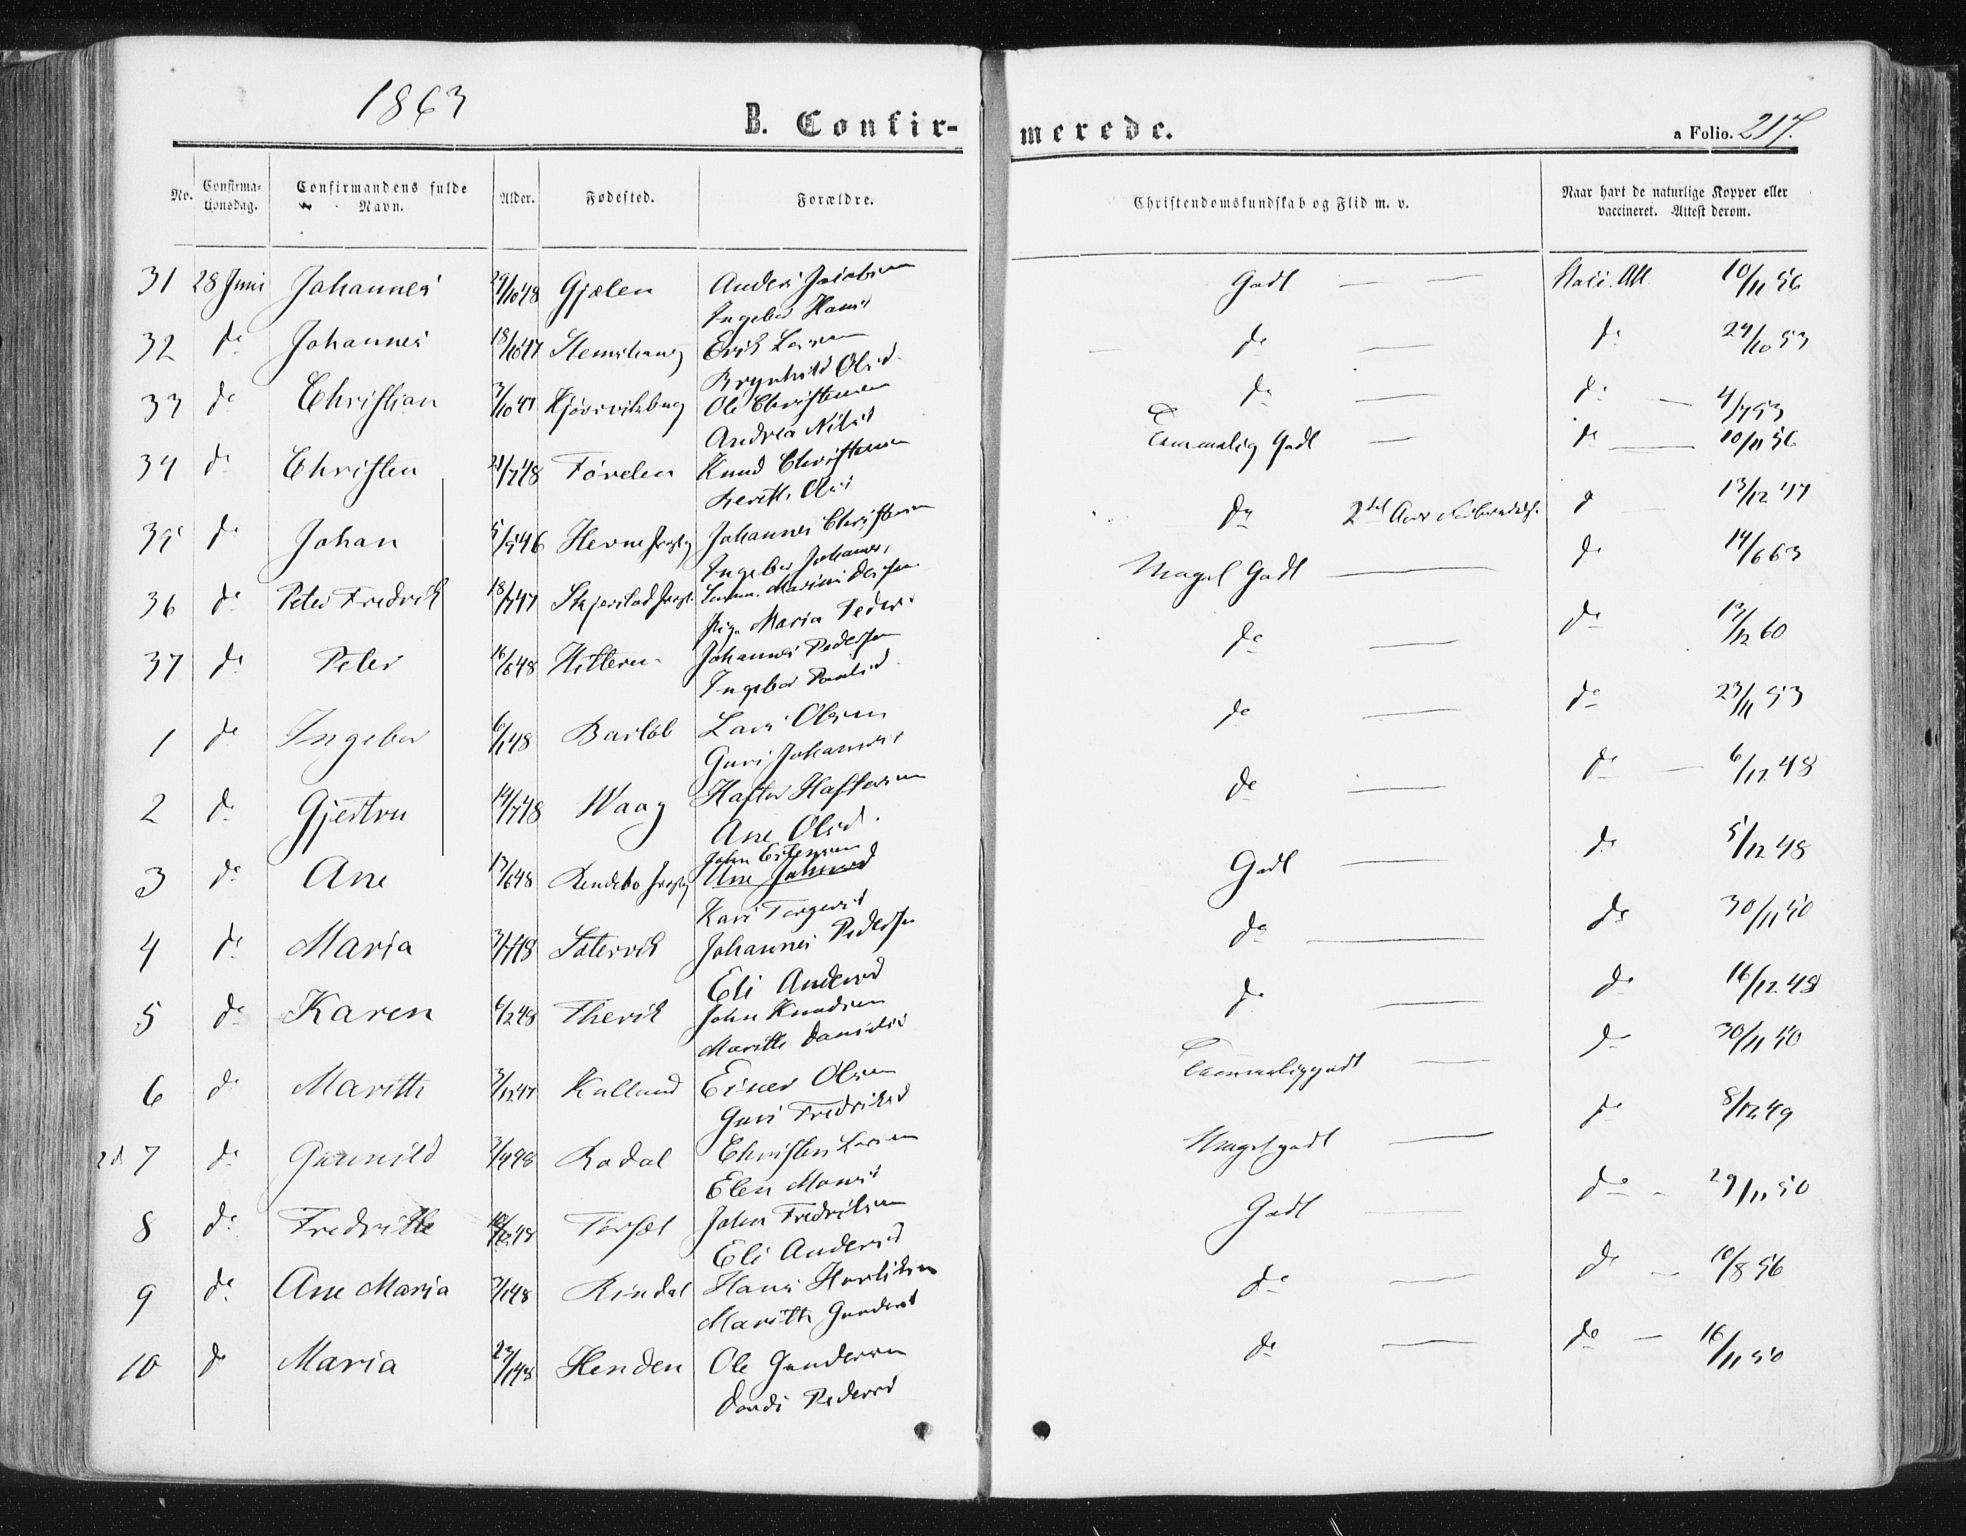 1863
B. Confir-
merede.
a Folio. 217.
No.
Confirma-
tionsdag.
Confirmandens fulde
Navn.
Alder.
Fødested.
Forældre.
Christendomskundskab og Flid m. v.
Naar havt de naturlige Kopper eller
vaccineret. Attest derom.
31 28 Juni Johannes 29/10 48 Gjølen Anders Jacobsen Godt 10/11 56
Ingebor Hansd
32 do Johannes 18/10 47 Erik Larsen do do 29/10 53
Brynhild Olsd.
33 do Christian 3/10 47 Ole Christensen do do 4/7 53
Andrea Nilsd
34 do Christen 21/7 48 Førelen Knud Christensen Temmelig Godt do 10/11 56
Berith Olsd
35 do Johan 5/5 46 Hevne Prstg Johannes Christensen do 2det do 13/12 47
Ingebor Johansd
36 do Peter Fredrik 18/7 47 Maget Godt do 14/6 63
Maria Peders
37 do Peter 16/6 48 Hitteren Johannes Pedersen do do 13/12 60
Ingebor Paulsd.
1 do Ingebor 6/1 48 Barlob Lars Olsen do do 23/11 53
Guri Johansd
2 do Gjertru 14/7 48 Waag Hafter Haftersen do do 6/12 48
Ane Olsd.
John Estensen
3 do Ane 13/6 48 Ane Johansd Godt do 5/12 48
Kari Torgersd
4 do Maria 3/7 48 Satervik Johannes Pedersen do do 30/11 50
Eli Andersd
5 do Karen 6/2 48 Thervik John Knudsen do do 16/12 48
Marith Danielsd
6 do Marith 3/12 47 Kalland Einer Olsen Temmeliggodt do 30/11 50
Guri Fredriksd
7 do Gunnild 3/4 48 Rodal Christen Larsen Megetgodt do 8/12 49
Elen Monsd
8 do Fredrikke Torset John Fredriksen Godt do 29/11 50
Eli Andersd
9 do Ane Maria 3/1 48 Rindal Hans do do 10/8 56
Marith Gundersd
10 do Maria 23/1 48 Henden Ole Gundersen do do 16/11 50
Dordi Pedersd